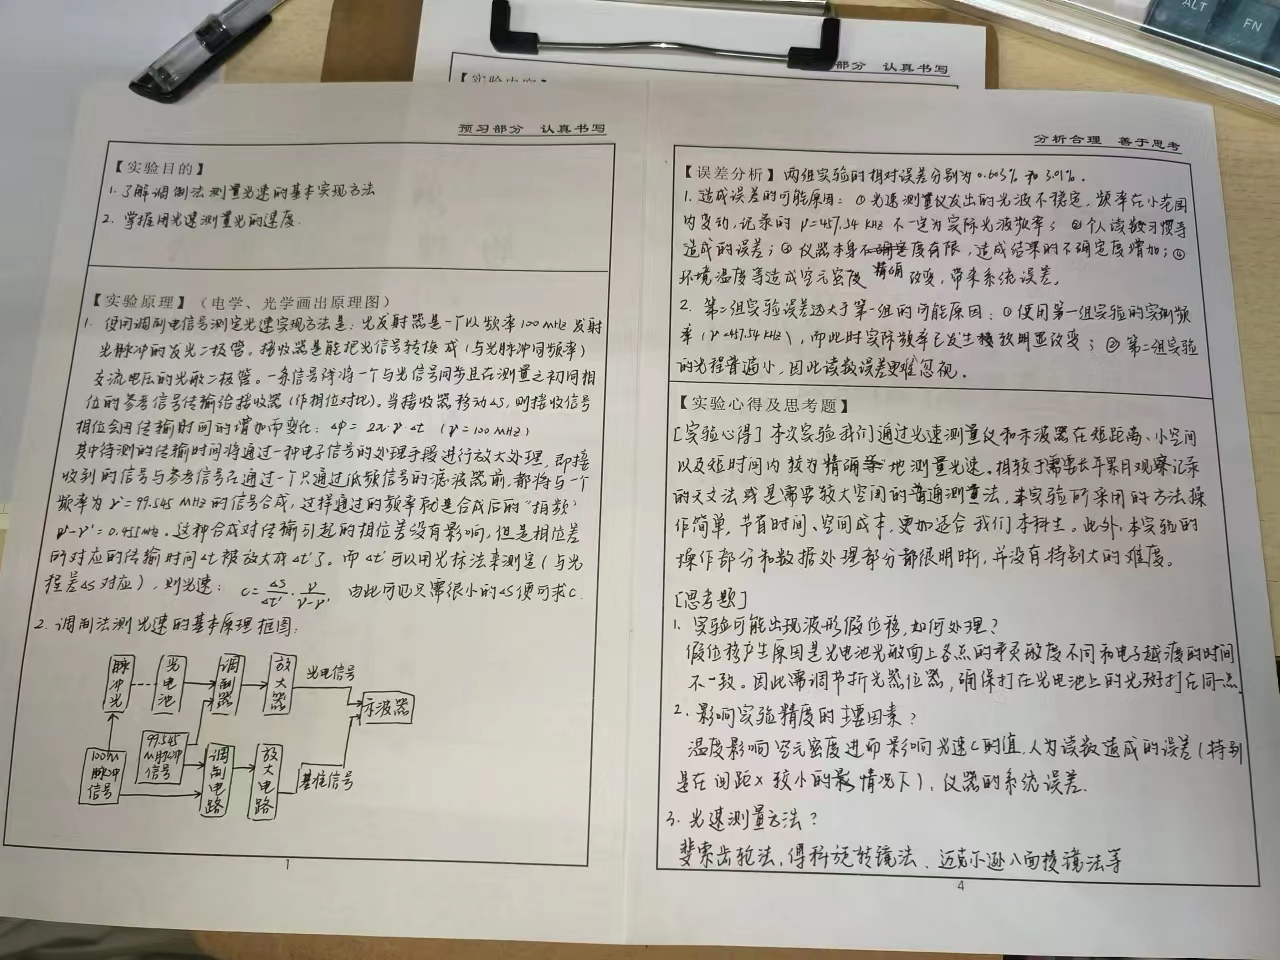 ALT
FN
【实验内容】
部分 认真书写
预习部分 认真书写
【实验目的】
1. 了解调制法测量光速的基本实现方法
2. 掌握用光速测量光的速度.
【实验原理】（电学、光学画出原理图）
1. 使用调制电信号测定光速实现方法是：光发射器是一个以频率100MHz发射
光脉冲的发光二极管。接收器是能把光信号转换成（与光脉冲同频率）
交流电压的光敏二极管。一条信号线将一个与光信号同步且在测量之初同相
位的参考信号传输给接收器（作相位对比）。当接收器移动ΔS, 则接收信号
相位会因传输时间的增加而变化：Δφ = 2π·ν·Δt （ν=100MHz）
其中待测的传输时间将通过一种电子信号的处理手段进行放大处理，即接
收到的信号与参考信号在通过一个只通过低频信号的滤波器前，都将与一个
频率为ν'=99.545MHz的信号合成，这样通过的频率就是合成后的“拍频”
ν-ν'=0.455MHz。这种合成对传输引起的相位差没有影响，但是相位差
所对应的传输时间Δt被放大成Δt'了。而Δt'可以用光标法来测定（与光
程差ΔS对应），则光速： c=ΔS/Δt'·ν/(ν-ν') 由此可见只需很小的ΔS便可求c.
2. 调制法测光速的基本原理框图：
脉冲光
光电池
调制器
放大器
光电信号
示波器
100M脉冲信号
99.545M脉冲信号
调制电路
放大电路
基准信号
1
分析合理 善于思考
【误差分析】 两组实验的相对误差分别为0.603%和3.01%.
1. 造成误差的可能原因：①光速测量仪发出的光波不稳定，频率在小范围
内变动，记录的ν=457.54kHz不一定为实际光波频率；②个人读数习惯等
造成的误差；③仪器本身精确度有限，造成结果的不确定度增加；④
环境温度等造成空气密度改变，带来系统误差。
2. 第二组实验误差远大于第一组的可能原因：①使用第一组实验的实测频
率（ν=457.54kHz），而此时实际频率已发生较明显改变；②第二组实验
的光程普遍小，因此读数误差更难忽视。
【实验心得及思考题】
[实验心得] 本次实验我们通过光速测量仪和示波器在短距离、小空间
以及短时间内较为精确地测量光速。相较于需要长年累月观察记录
的天文法或是需要较大空间的普通测量法，本实验所采用的方法操
作简单，节省时间、空间成本，更加适合我们本科生。此外，本实验的
操作部分和数据处理部分都很明晰，并没有特别大的难度。
[思考题]
1. 实验可能出现波形假位移，如何处理？
假位移产生原因是光电池光敏面上各点的灵敏度不同和电子越渡的时间
不一致。因此需调节折光器位置，确保打在光电池上的光斑打在同一点.
2. 影响实验精度的主要因素？
温度影响空气密度进而影响光速c的值，人为读数造成的误差（特别
是在间距x较小的情况下），仪器的系统误差.
3. 光速测量方法？
斐索齿轮法，傅科旋转镜法，迈克尔逊八面棱镜法等
4